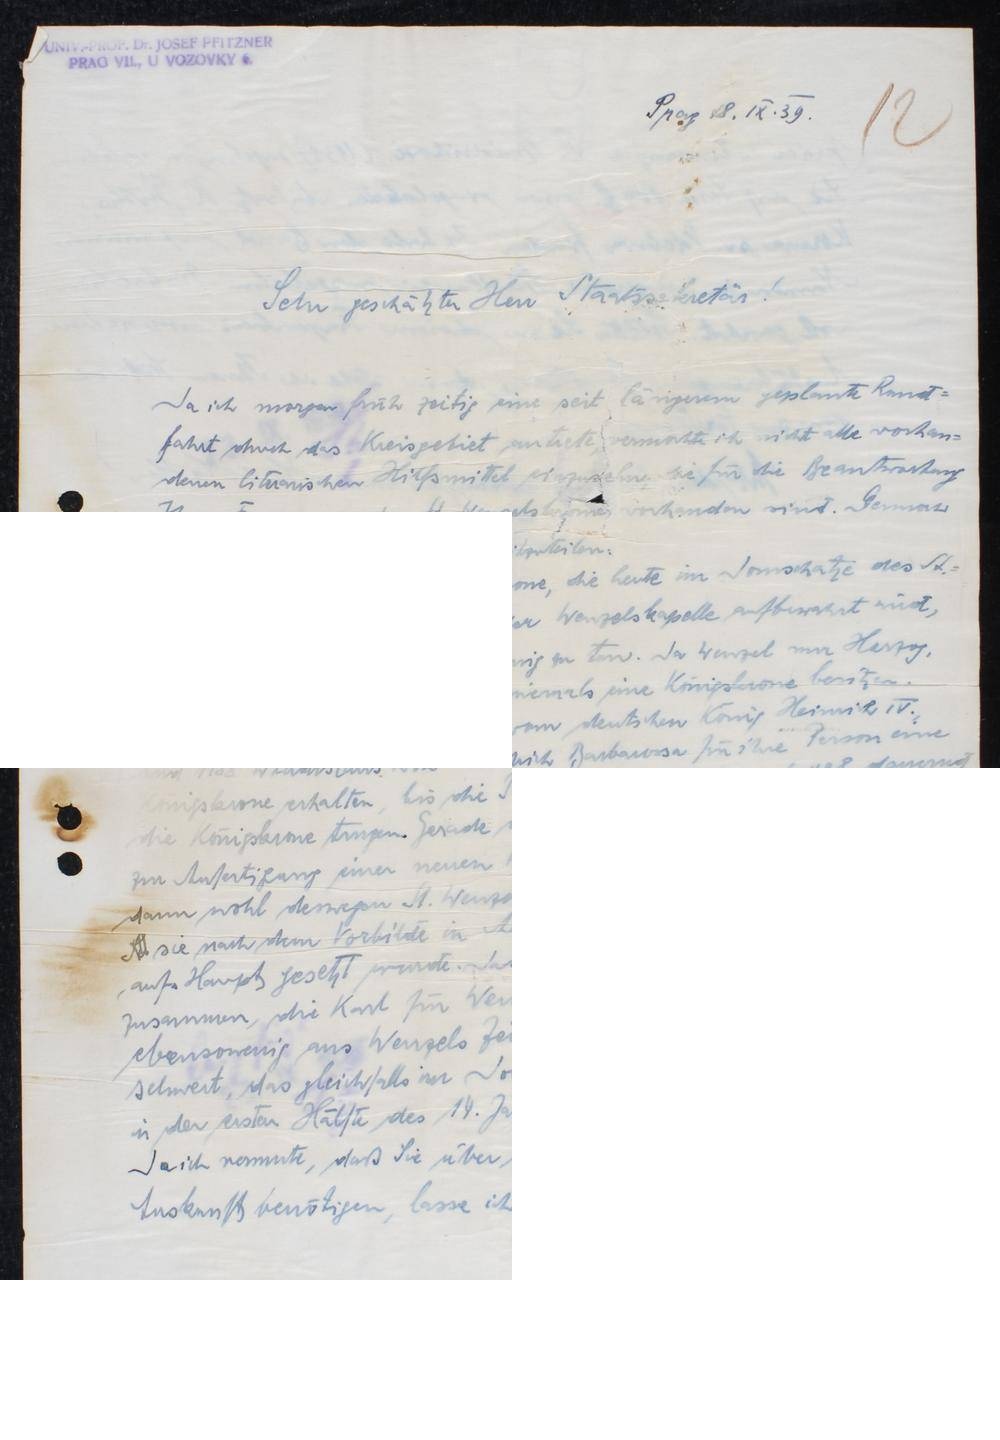 UNIV.-PROF. Dr. JOSEF PFITZNER
PRAG VII., U VOZOVKY 6.
Prag 18. IX. 39.
12
Sehr geschätzter Herr Staatssekretär!
Da ich morgen früh zeitig eine seit längerem geplante Rund=
fahrt durch das Kreisgebiet antrete, vermochte ich nicht alle vorhan=
denen literarischen Hilfsmittel einzusehen, die für die Beantwortung
vorhanden sind. Dennoch
mitzuteilen:
one, die heute im Domschatze des St.=
der Wenzelskapelle aufbewahrt wird,
nig zu tun. Da Wenzel nur Herzog,
niemals eine Königskrone besitzen.
vom deutschen König Heinrich IV.,
rich Barbarossa für ihre Person eine
dauernd
und 1158
Königskrone erhalten, bis die
die Königskrone trugen. Gerade
zur Anfertigung einer neuen
dann wohl deswegen St. Wenze
sie nach dem Vorbilde in
aufs Haupt gesetzt wurde. Da
zusammen, die Karl für Wen
ebensowenig aus Wenzels Zei
schwert, das gleichfalls im Do
in der ersten Hälfte des 14. Ja
Da ich vermute, daß Sie über
Auskunft benötigen, lasse ich